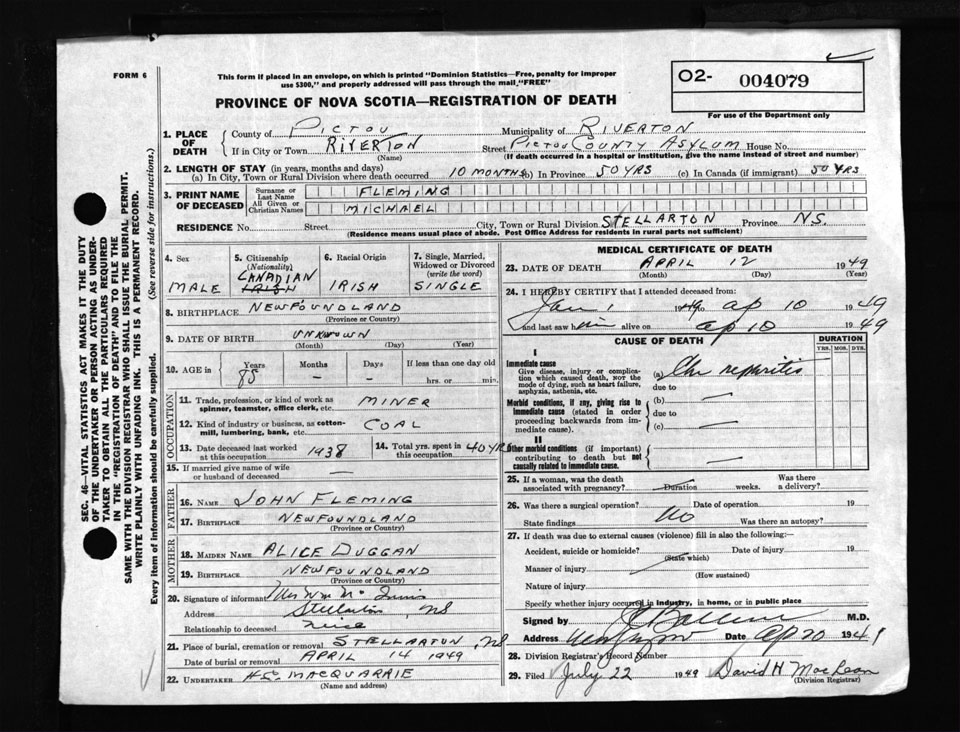 FORM 6
This form if placed in an envelope, on which is printed "Dominion Statistics—Free, penalty for improper
use $300," and properly addressed will pass through the mail "FREE"
O2- 004079
For use of the Department only
PROVINCE OF NOVA SCOTIA—REGISTRATION OF DEATH
1. PLACE OF DEATH
County of PICTOU Municipality of RIVERTON
If in City or Town RIVERTON Street PICTOU COUNTY ASYLUM House No.
(Name) (If death occurred in a hospital or institution, give the name instead of street and number)
2. LENGTH OF STAY (in years, months and days)
(a) In City, Town or Rural Division where death occurred 10 MONTHS (b) In Province 50 YRS (c) In Canada (if immigrant) 50 YRS
3. PRINT NAME OF DECEASED
Surname or Last Name FLEMING
All Given or Christian Names MICHAEL
RESIDENCE No. Street City, Town or Rural Division STELLARTON Province N.S.
(Residence means usual place of abode. Post Office Address for residents in rural parts not sufficient)
4. Sex MALE
5. Citizenship (Nationality) CANADIAN IRISH
6. Racial Origin IRISH
7. Single, Married, Widowed or Divorced (write the word) SINGLE
8. BIRTHPLACE NEWFOUNDLAND
(Province or Country)
9. DATE OF BIRTH UNKNOWN
(Month) (Day) (Year)
10. AGE in Years 85 Months – Days – If less than one day old hrs. or min.
OCCUPATION
11. Trade, profession, or kind of work as spinner, teamster, office clerk, etc. MINER
12. Kind of industry or business, as cotton-mill, lumbering, bank, etc. COAL
13. Date deceased last worked at this occupation 1938
14. Total yrs. spent in this occupation 40 YRS
15. If married give name of wife or husband of deceased
FATHER
16. NAME JOHN FLEMING
17. BIRTHPLACE NEWFOUNDLAND
(Province or Country)
MOTHER
18. MAIDEN NAME ALICE DUGGAN
19. BIRTHPLACE NEWFOUNDLAND
(Province or Country)
20. Signature of informant Mrs Wm Mc
Address Stellarton, NS
Relationship to deceased Neice
21. Place of burial, cremation or removal STELLARTON, NS
Date of burial or removal APRIL 14 1949
22. UNDERTAKER MACQUARRIE
(Name and address)
MEDICAL CERTIFICATE OF DEATH
23. DATE OF DEATH APRIL 12 1949
(Month) (Day) (Year)
24. I HEREBY CERTIFY that I attended deceased from:
Jan 1 1949 ap 10 1949
and last saw him alive on ap 10 1949
CAUSE OF DEATH
DURATION
YRS. MOS. DYS.
I
Immediate cause
Give disease, injury or complication which caused death, not the mode of dying, such as heart failure, asphyxia, asthenia, etc.
(a) Chr nephritis
due to
Morbid conditions, if any, giving rise to immediate cause (stated in order proceeding backwards from immediate cause).
(b) —
due to
(c) —
II
Other morbid conditions (if important) contributing to death but not causally related to immediate cause.
25. If a woman, was the death associated with pregnancy? Duration weeks. Was there a delivery?
26. Was there a surgical operation? No Date of operation 19
State findings Was there an autopsy?
27. If death was due to external causes (violence) fill in also the following:—
Accident, suicide or homicide? Date of injury 19
(State which)
Manner of injury
(How sustained)
Nature of injury
Specify whether injury occurred in industry, in home, or in public place
Signed by M.D.
Address New Glasgow Date Ap 20 1949
28. Division Registrar's Record Number
29. Filed July 22 1949 David H MacLean
(Division Registrar)
SEC. 46—VITAL STATISTICS ACT MAKES IT THE DUTY
OF THE UNDERTAKER OR PERSON ACTING AS UNDER-
TAKER TO OBTAIN ALL THE PARTICULARS REQUIRED
IN THE "REGISTRATION OF DEATH" AND TO FILE THE
SAME WITH THE DIVISION REGISTRAR WHO SHALL ISSUE THE BURIAL PERMIT.
WRITE PLAINLY WITH UNFADING INK. THIS IS A PERMANENT RECORD.
Every item of information should be carefully supplied. (See reverse side for instructions.)